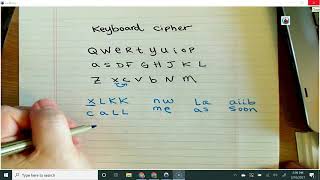 Keyboard cipher
Q W E R T Y U I O P
A S D F G H J K L
Z X C V B N M
XLKK nw La aiib
CALL me as soon